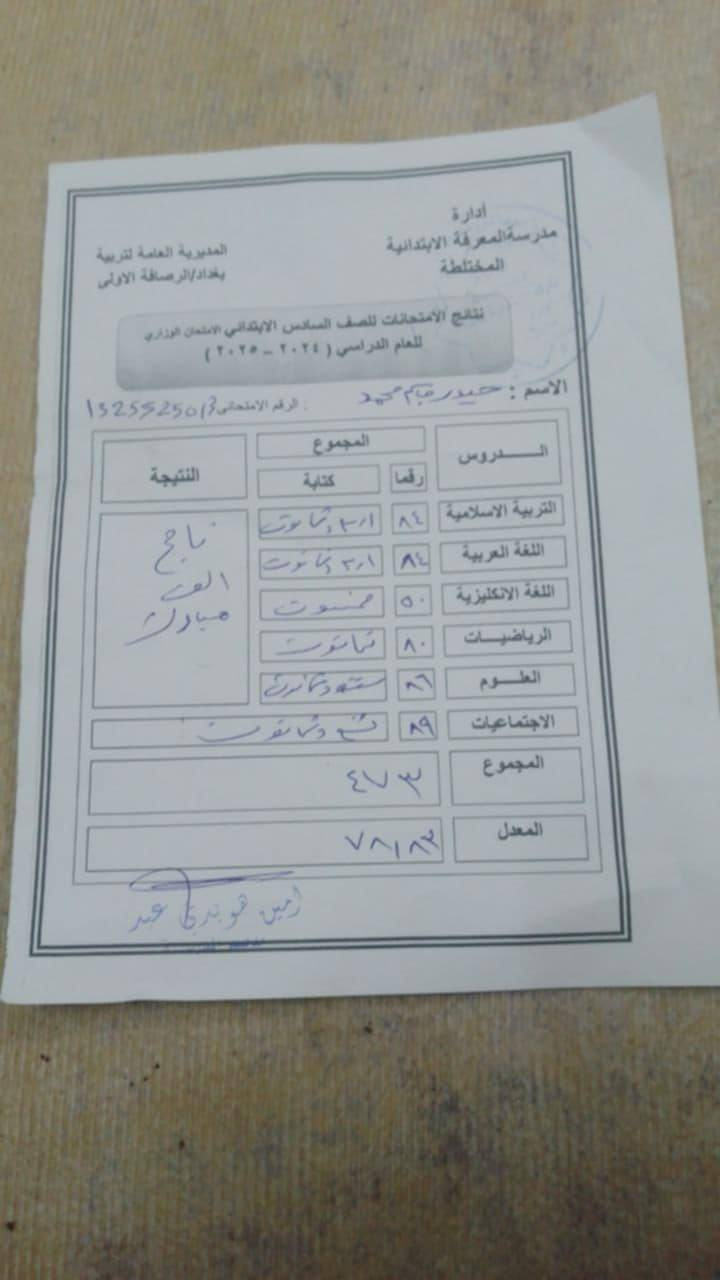 أدارة
مدرسة المعرفة الابتدائية
المختلطة
المديرية العامة لتربية
بغداد/الرصافة الاولى
نتائج الامتحانات للصف السادس الابتدائي الامتحان الوزاري
للعام الدراسي ( ٢٠٢٤ – ٢٠٢٥ )
الاسم : حيدر جاسم محمد الرقم الامتحاني:
الـــدروس المجموع النتيجة
رقما كتابة
التربية الاسلامية ٨٤ اربعة وثمانون
اللغة العربية ٨٤ اربعة وثمانون
اللغة الانكليزية ٥٠ خمسون
الرياضيـــات ٨٠ ثمانون
العلـــوم ٨٦ ستة وثمانون
الاجتماعيات ٨٩ تسع وثمانون
ناجح
الف
مبارك
المجموع ٤٧٣
المعدل ٧٨,٨٣
امين عبد